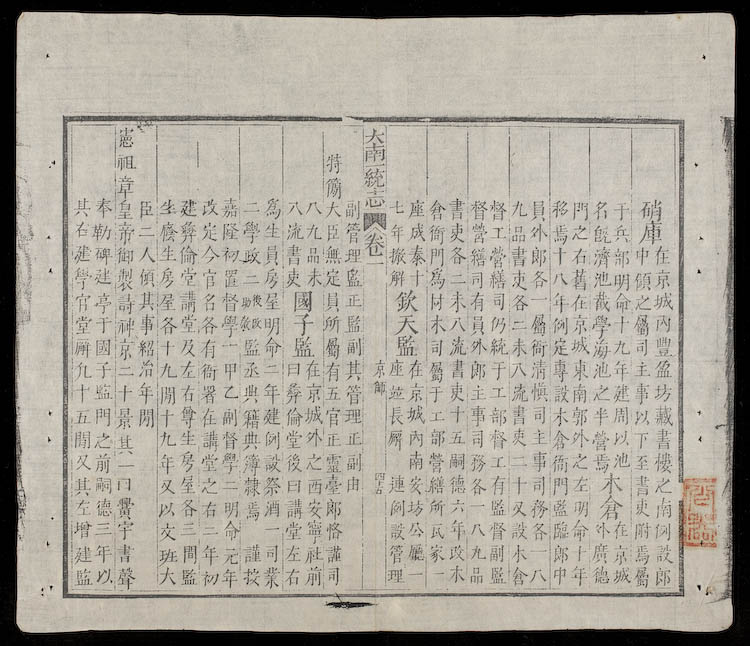 硝庫在京城內豐盈坊藏書樓之南例設郎
中領之屬司主事以下至書吏附焉屬
于兵部明命十九年建周以池
名旣濟池截學海池之半營焉
木倉在京城
外廣德
門之右舊在京城東南郭外之左明命十年
移焉十八年例定專設木倉衙門監臨郎中
員外郎各一屬衙清慎司主事司務各一八
九品書吏各二未八流書吏二十又設木倉
督工營繕司仍統于工部督工有監督副監
督營繕司有員外郎主事司務各一八九品
書吏各二未八流書吏十五嗣德六年改木
倉衙門為材木司屬于工部營繕所瓦家一
座成泰十
七年撤解
欽天監在京城內南安坊公廳一
座並長廨一連例設管理
大南一統志 卷一 京師 四十五
副管理監正監副其管理正副由
特簡大臣無定員所屬有五官正靈臺郎恪謹司
八九品未
八流書吏
國子監在京城外之西安寧社前
曰彛倫堂後曰講堂左右
為生員房屋明命二年建例設祭酒一司業
二學政二後改助教監丞典籍典簿隸焉謹按
嘉隆初置督學一甲乙副督學二明命元年
改定今官名各有衙署在講堂之右二年初
建彛倫堂講堂及左右尊生房屋各三間監
生廕生房屋各十九間十九年又以文班大
臣二人領其事紹治年間
憲祖章皇帝御製詩神京二十景其一曰黌宇書聲
奉勒碑建亭于國子監門之前嗣德三年以
其右建學官堂廨九十五間又其左增建監